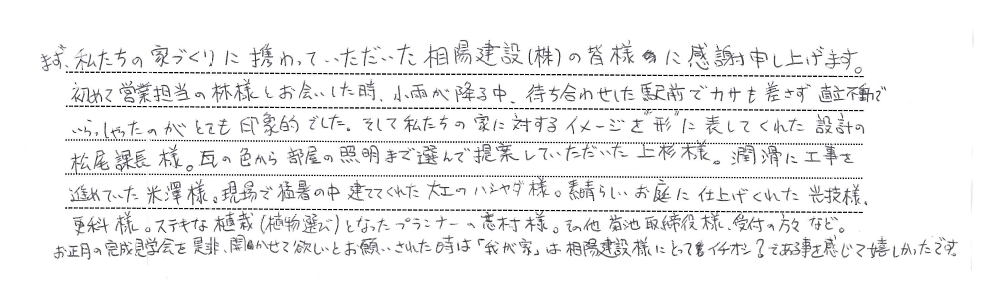 まず、私たちの家づくりに携わっていただいた相陽建設(株)の皆様に感謝申し上げます。
初めて営業担当の林様とお会いした時、小雨が降る中、待ち合わせした駅前でカサも差さず直立不動で
いらっしゃったのがとても印象的でした。そして私たちの家に対するイメージを"形"に表してくれた設計の
松尾課長様。瓦の色から部屋の照明まで選んで提案していただいた上杉様。潤滑に工事を
進めていた米澤様。現場で猛暑の中建ててくれた大工のハシヤダ様。素晴らしいお庭に仕上げくれた光技様、
更科様。ステキな植栽(植物選び)となったプランナーの志村様。その他菊池取締役様、受付の方々など。
お正月の完成見学会を是非、開かせて欲しいとお願いされた時は「我が家」は相陽建設様にとってもイチオシ?である事を感じて嬉しかったです。